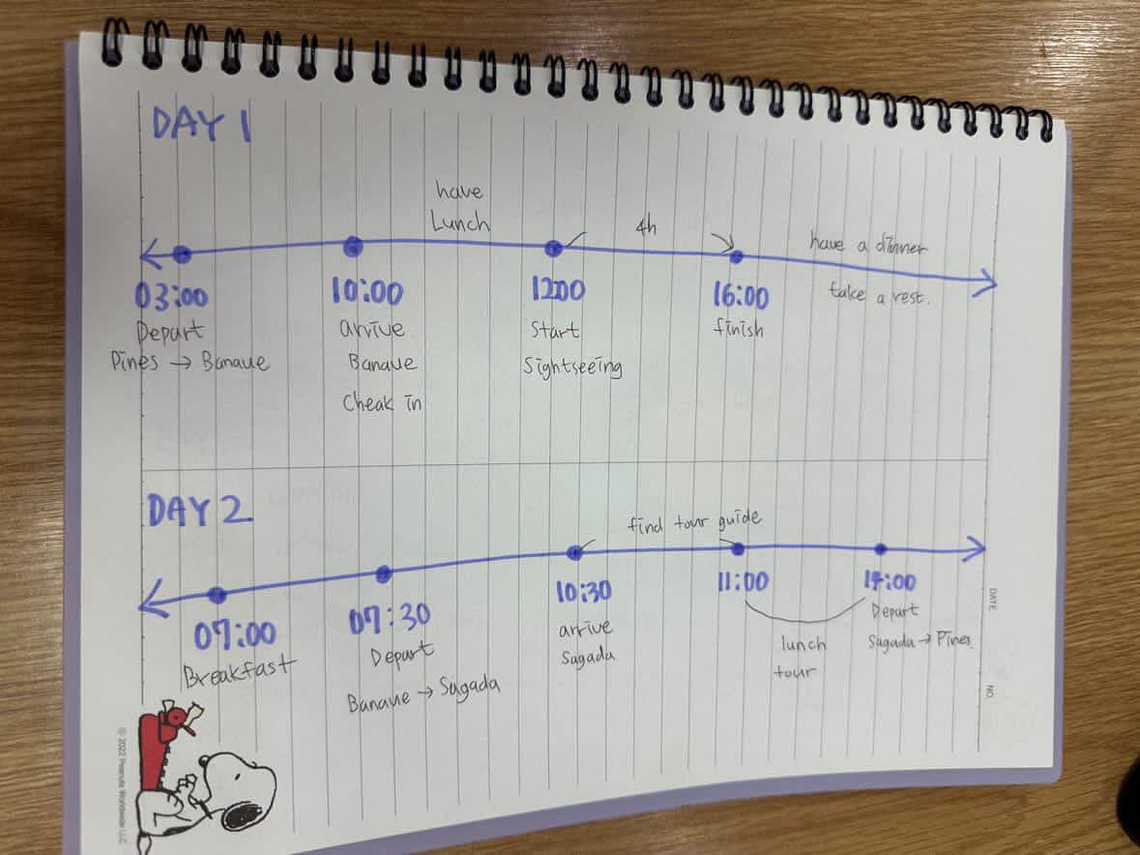 DAY 1
have
Lunch
4h
have a dinner
take a rest.
03:00
Depart
Pines → Banaue
10:00
arrive
Banaue
Cheak in
12:00
Start
Sightseeing
16:00
finish
DAY 2
find tour guide
07:00
Breakfast
07:30
Depart
Banaue → Sagada
10:30
arrive
Sagada
11:00
lunch
tour
14:00
Depart
Sagada → Pines.
DATE
NO
© 2022 Peanuts Worldwide LLC